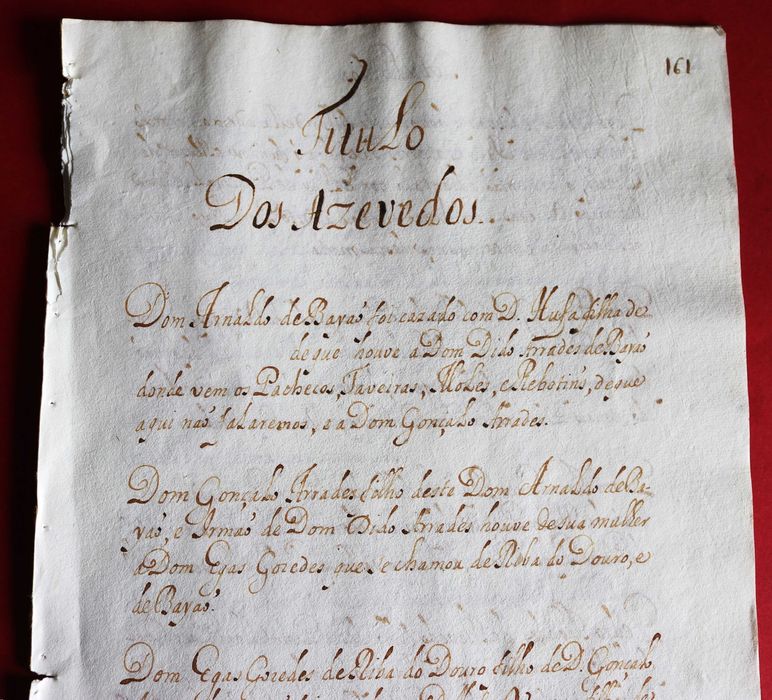 161
Titulo
Dos Azevedos.
Dom Arnaldo de Bayaõ foi cazado com D. Hufa filha de
de que houve a Dom Dido Arrades de Bayaõ
donde vem os Pachecos, Taveiras, e Rebotins, de que
aqui naõ falaremos, e a Dom Gonçalo Arrades.
Dom Gonçalo Arrades filho deste Dom Arnaldo de Ba-
yaõ, e Irmaõ de Dom Dido Arrades houve de sua mulher
a Dom Egas Goiedes que se chamou de Riba do Douro, e
de Bayaõ.
Dom Egas Goiedes de Riba do Douro filho de D. Gonçalo